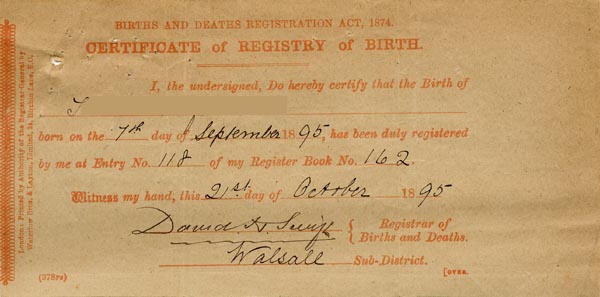 BIRTHS AND DEATHS REGISTRATION ACT, 1874.
CERTIFICATE of REGISTRY of BIRTH.
I, the undersigned, Do hereby certify that the Birth of
born on the 7th day of September 1895, has been duly registered
by me at Entry No. 118 of my Register Book No. 162.
Witness my hand, this 21st day of October 1895
David A. Swift { Registrar of
Births and Deaths.
Walsall Sub-District.
(378rs) [OVER.
London: Printed by Authority of the Registrar-General by
Waterlow Bros. & Layton, Limited, 24, Birchin Lane, E.C.